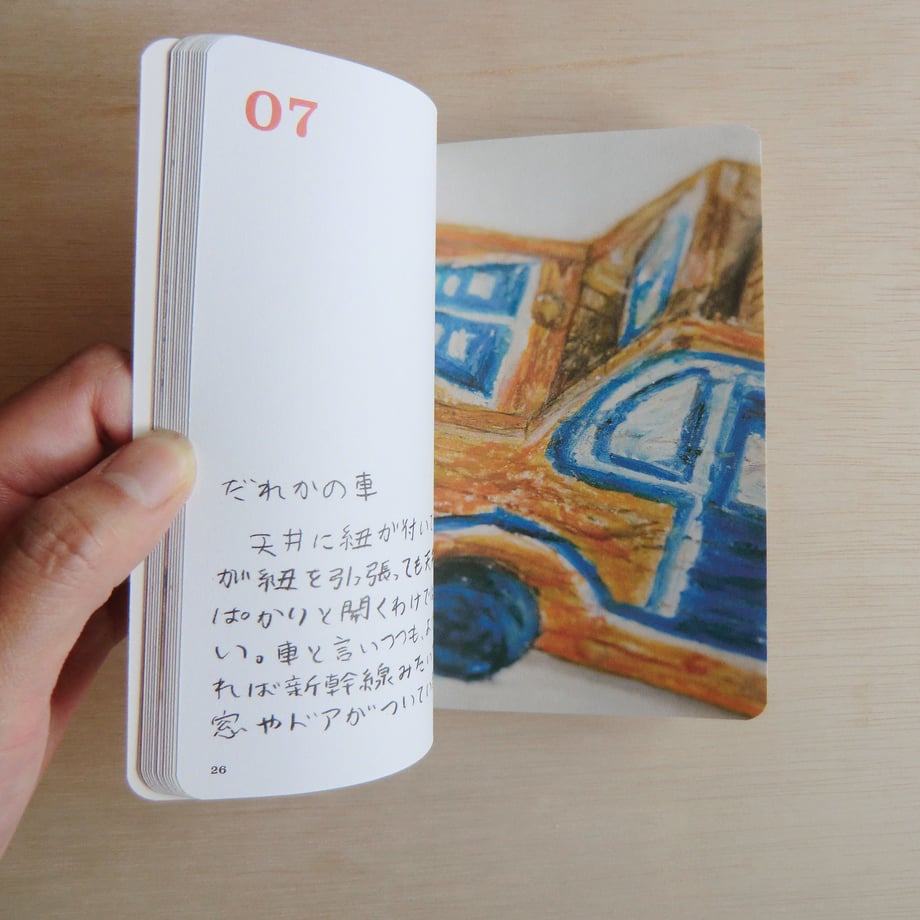 07
だれかの車
天井に紐が付いて
が紐を引っ張っても天
ぱかりと開くわけでは
い。車と言いつつも、よ
れば新幹線みたい
窓やドアがついてい
26